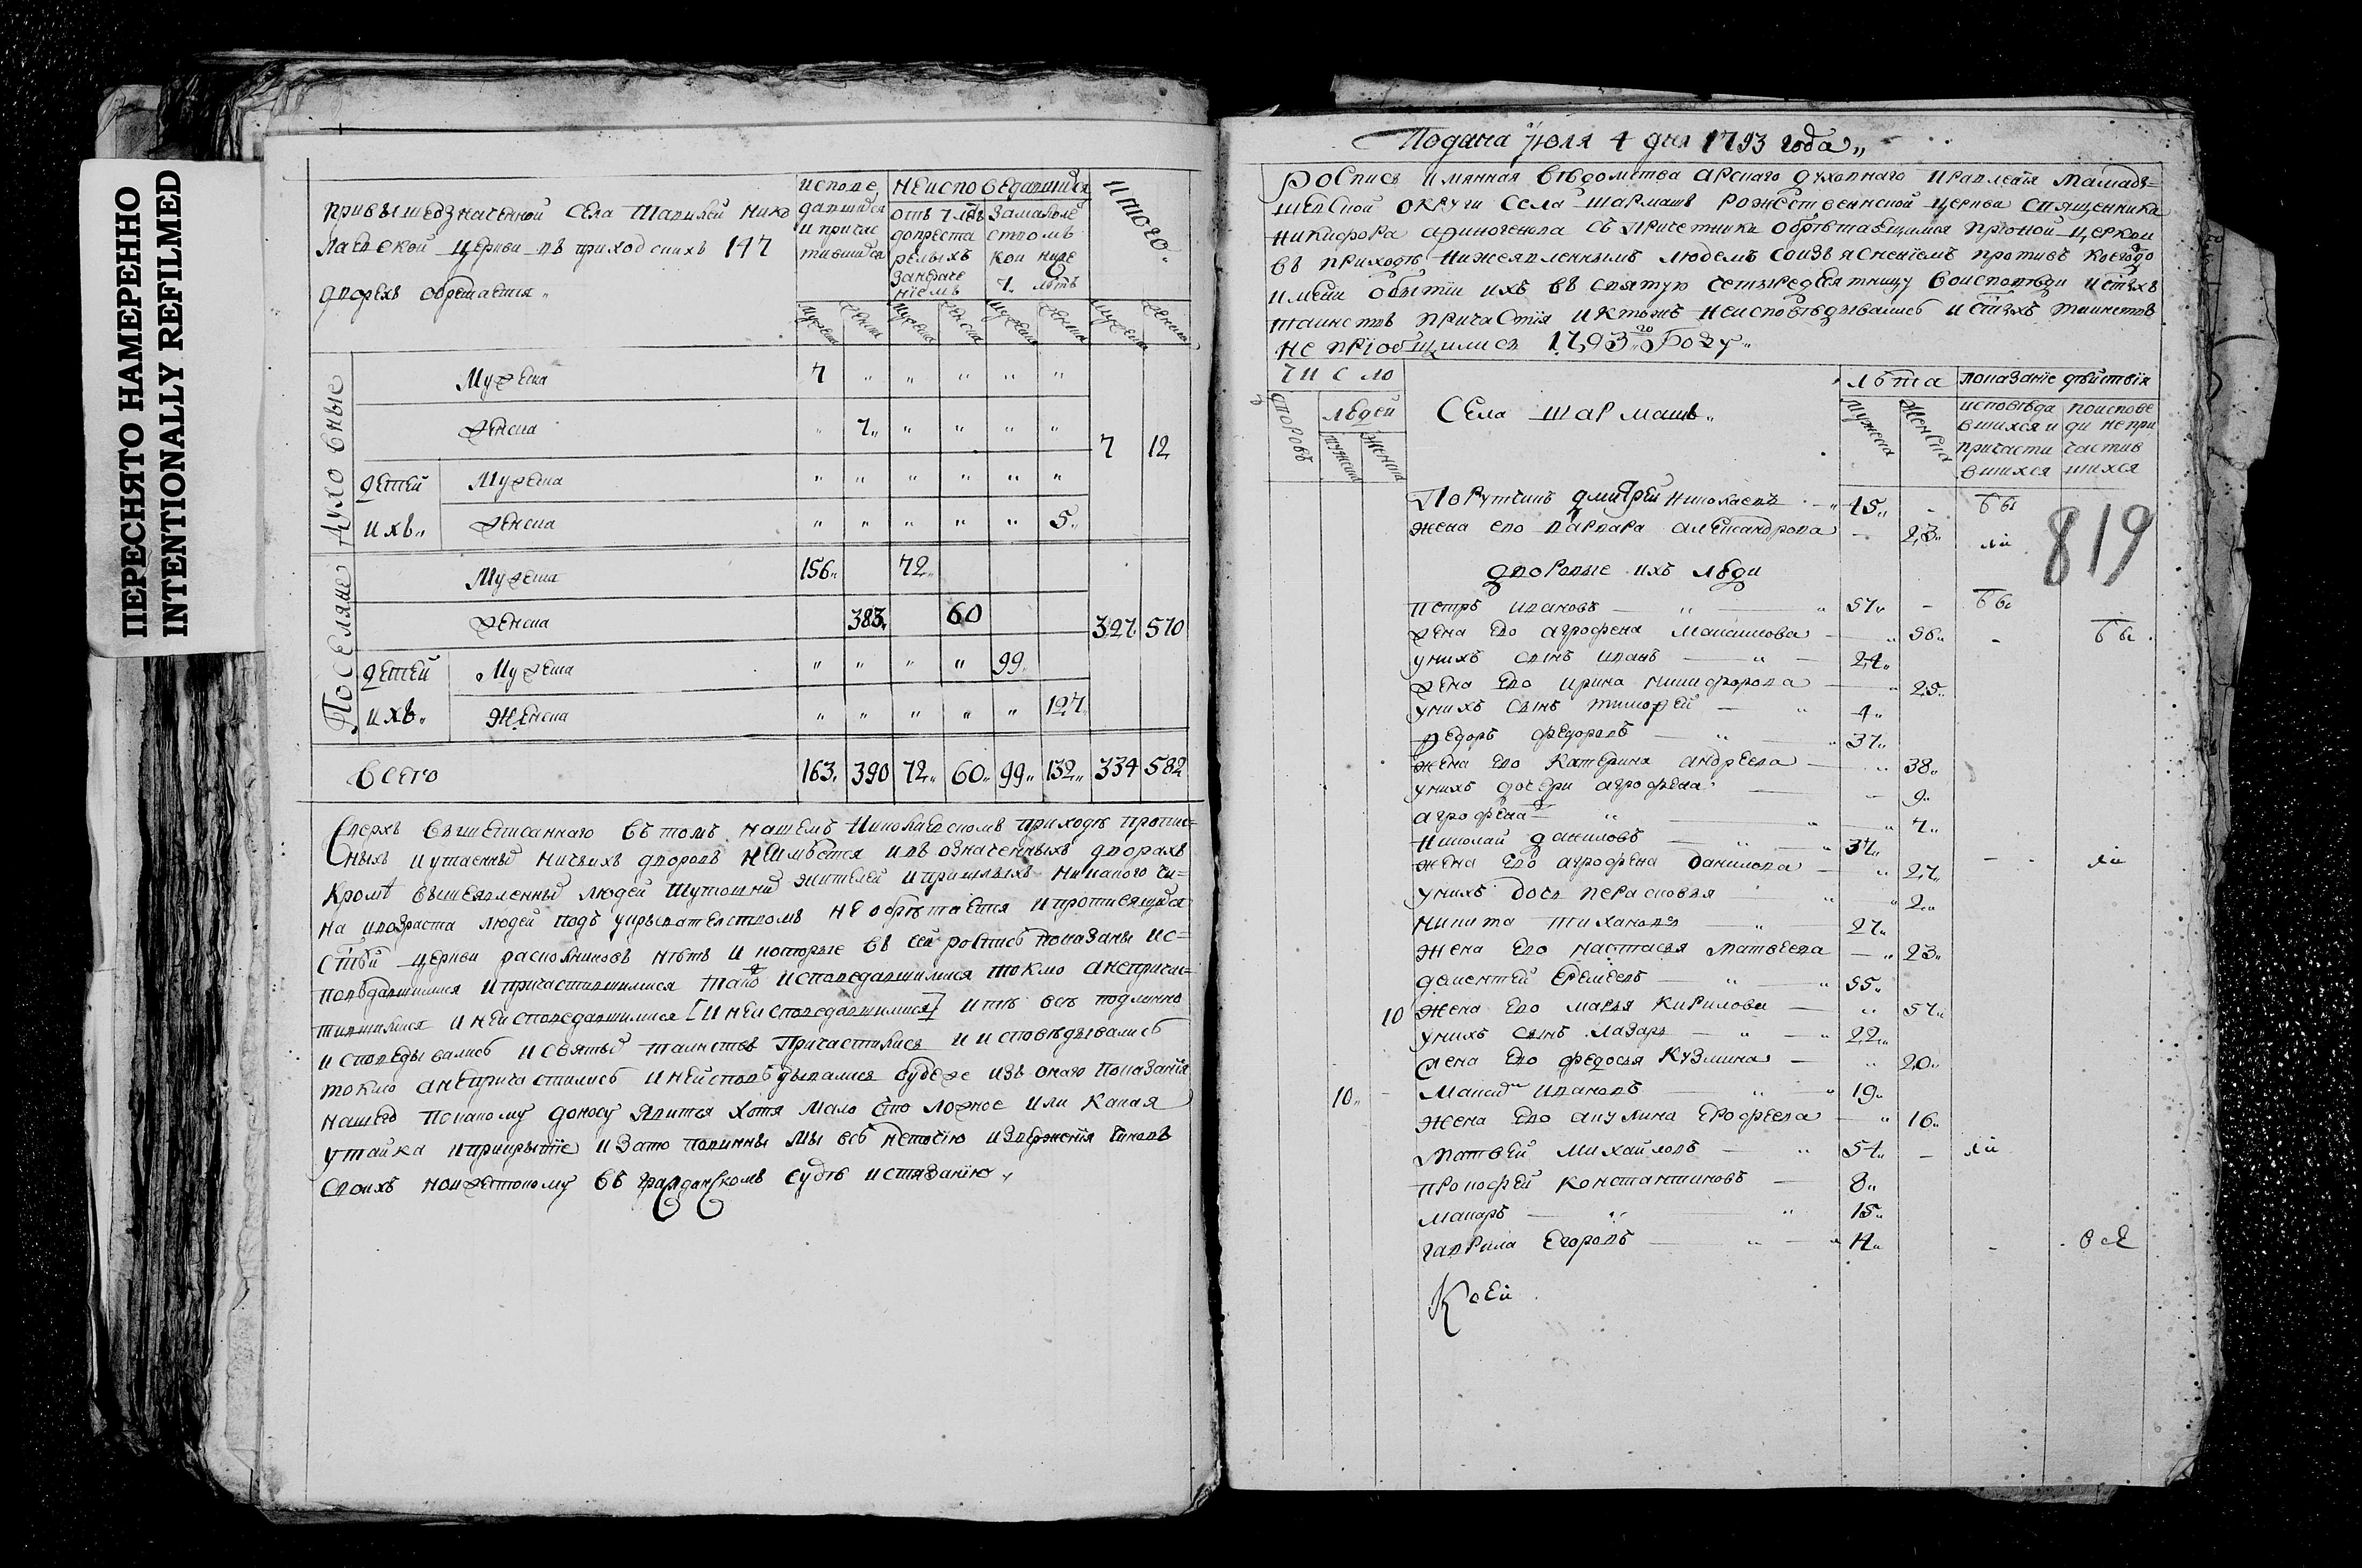 ПЕРЕСНЯТО НАМЕРЕННО
INTENTIONALLY REFILMED
при вышеозначенной села Николаевской церкви въ приход снихъ 147
дворехъ обретается
исповедавшихся и причастившихся
неисповедавшихся
отъ 7 летъ до престарелыхъ
за малолетством кои ниже 7 летъ
итого
мужеска женска мужеска женска мужеска женска мужеска женска
Духовные
Мужеска 7 " " " " "
Женска " 7 " " " " 7 12
детей ихъ
Мужеска " " " " " "
Женска " " " " " 5
Поселяне
Мужеска 156 72
Женска 383 60 327 570
детей ихъ
Мужеска " " " " 99
Женска " " " " " 127
Всего 163 390 72 60 99 132 334 582
Сверхъ вышеписаннаго въ томъ нашемъ Николаевскомъ приходе
ныхъ и утаенных ничьихъ дворовъ неимеется и въ означенныхъ дворахъ
кромѣ вышеявленных людей жителей и пришлыхъ никакого чи=
на и возраста людей подъ укрывательствомъ не обретается и противящихся
церкви раскольниковъ нѣтъ и которые въ сей росписѣ показаны ис=
поведавшимися и причастившимися исповедавшимися токмо а непричас=
тившимися и неисповедавшимися [и неисповедавшимися] и тѣ всѣ подлинно
исповедывались и святых таинствъ причастились и исповѣдывались
токмо а непричастились и неисповедывались буде же изъ онаго показания
нашего по какому доносу явится хотя мало что ложное или какая
утайка и прикрытие и за то повинны мы чиновъ
своихъ но и жестокому въ гражданскомъ судѣ истязанию
Подана Июля 4 дня 1793 года
Роспись имянная вѣдомства Арскаго духовнаго правления Мамады=
шевской округи села Шармашъ Рожественской церкви священника
Никифора Афиногенова съ причетники обрѣтающимся при оной церкви
въ приходѣ нижеявленнымъ людемъ со изъяснениемъ противъ коегождо
имени о бытии ихъ въ святую четыредесятницу во исповѣди и святыхъ
таинствъ причастия и ктожъ неисповѣдывались и святыхъ таинствъ
не приобщились 1793 го Году
число
дворовъ
людей
мужска женска
Села Шармашъ
лѣта
мужеска женска
показание дѣйствия
исповѣдавшихся и причастившихся
по исповеди не причастившихся
Порутчикъ Дмитрей Николаевъ 45 бы
жена его Варвара Александрова 23 ли
819
дворовые ихъ люди
Петръ Ивановъ 57 бы
жена его Агрофена Максимова 56 бы
у нихъ сынъ Иванъ 24
жена его Ирина Никифорова 25
у нихъ сынъ Тимофей 4
Федоръ Федоровъ 37
жена его Катерина Андреева 38
у нихъ дочери Агрофена 9
Агрофена 7
Николай Даниловъ 37
жена его Агрофена Данилова 27 ли
у нихъ дочь Перасковья 2
Никита Тихановъ 27
жена его Настасья Матвеева 23
Дементей Еремеевъ 55
10 жена его Марья Кирилова 57
у нихъ сынъ Лазарь 22
жена его Федосья Кузмина 20
10 Ивановъ 19
жена его Акулина Ерофеева 16
Матвей Михайловъ 54 ли
Прокофей Константиновъ 8
Макаръ 15
Гаврила Егоровъ 14 все